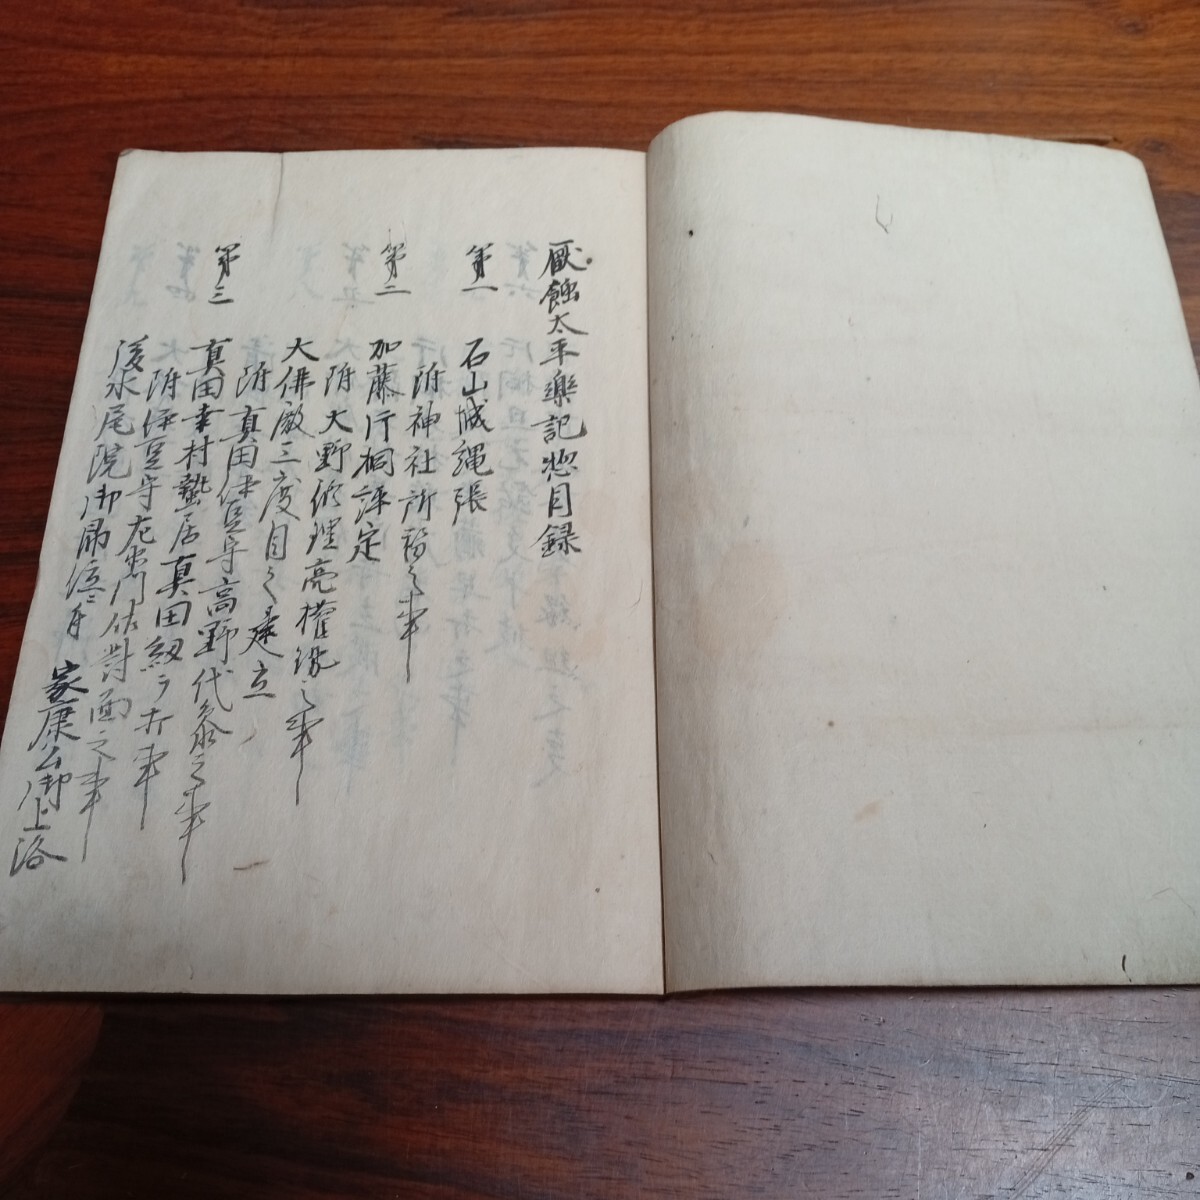 厭蝕太平楽記惣目録
第一
石山城縄張
附神社所替之事
第二
加藤片桐評定
附大野修理亮権謀之事
大佛殿三度目之建立
附真田伊豆守高野代参之事
第三
真田幸村蟄居真田紐ヲ打事
附伊豆守左衛門佐對面之事
後水尾院御即位二付 家康公御上洛